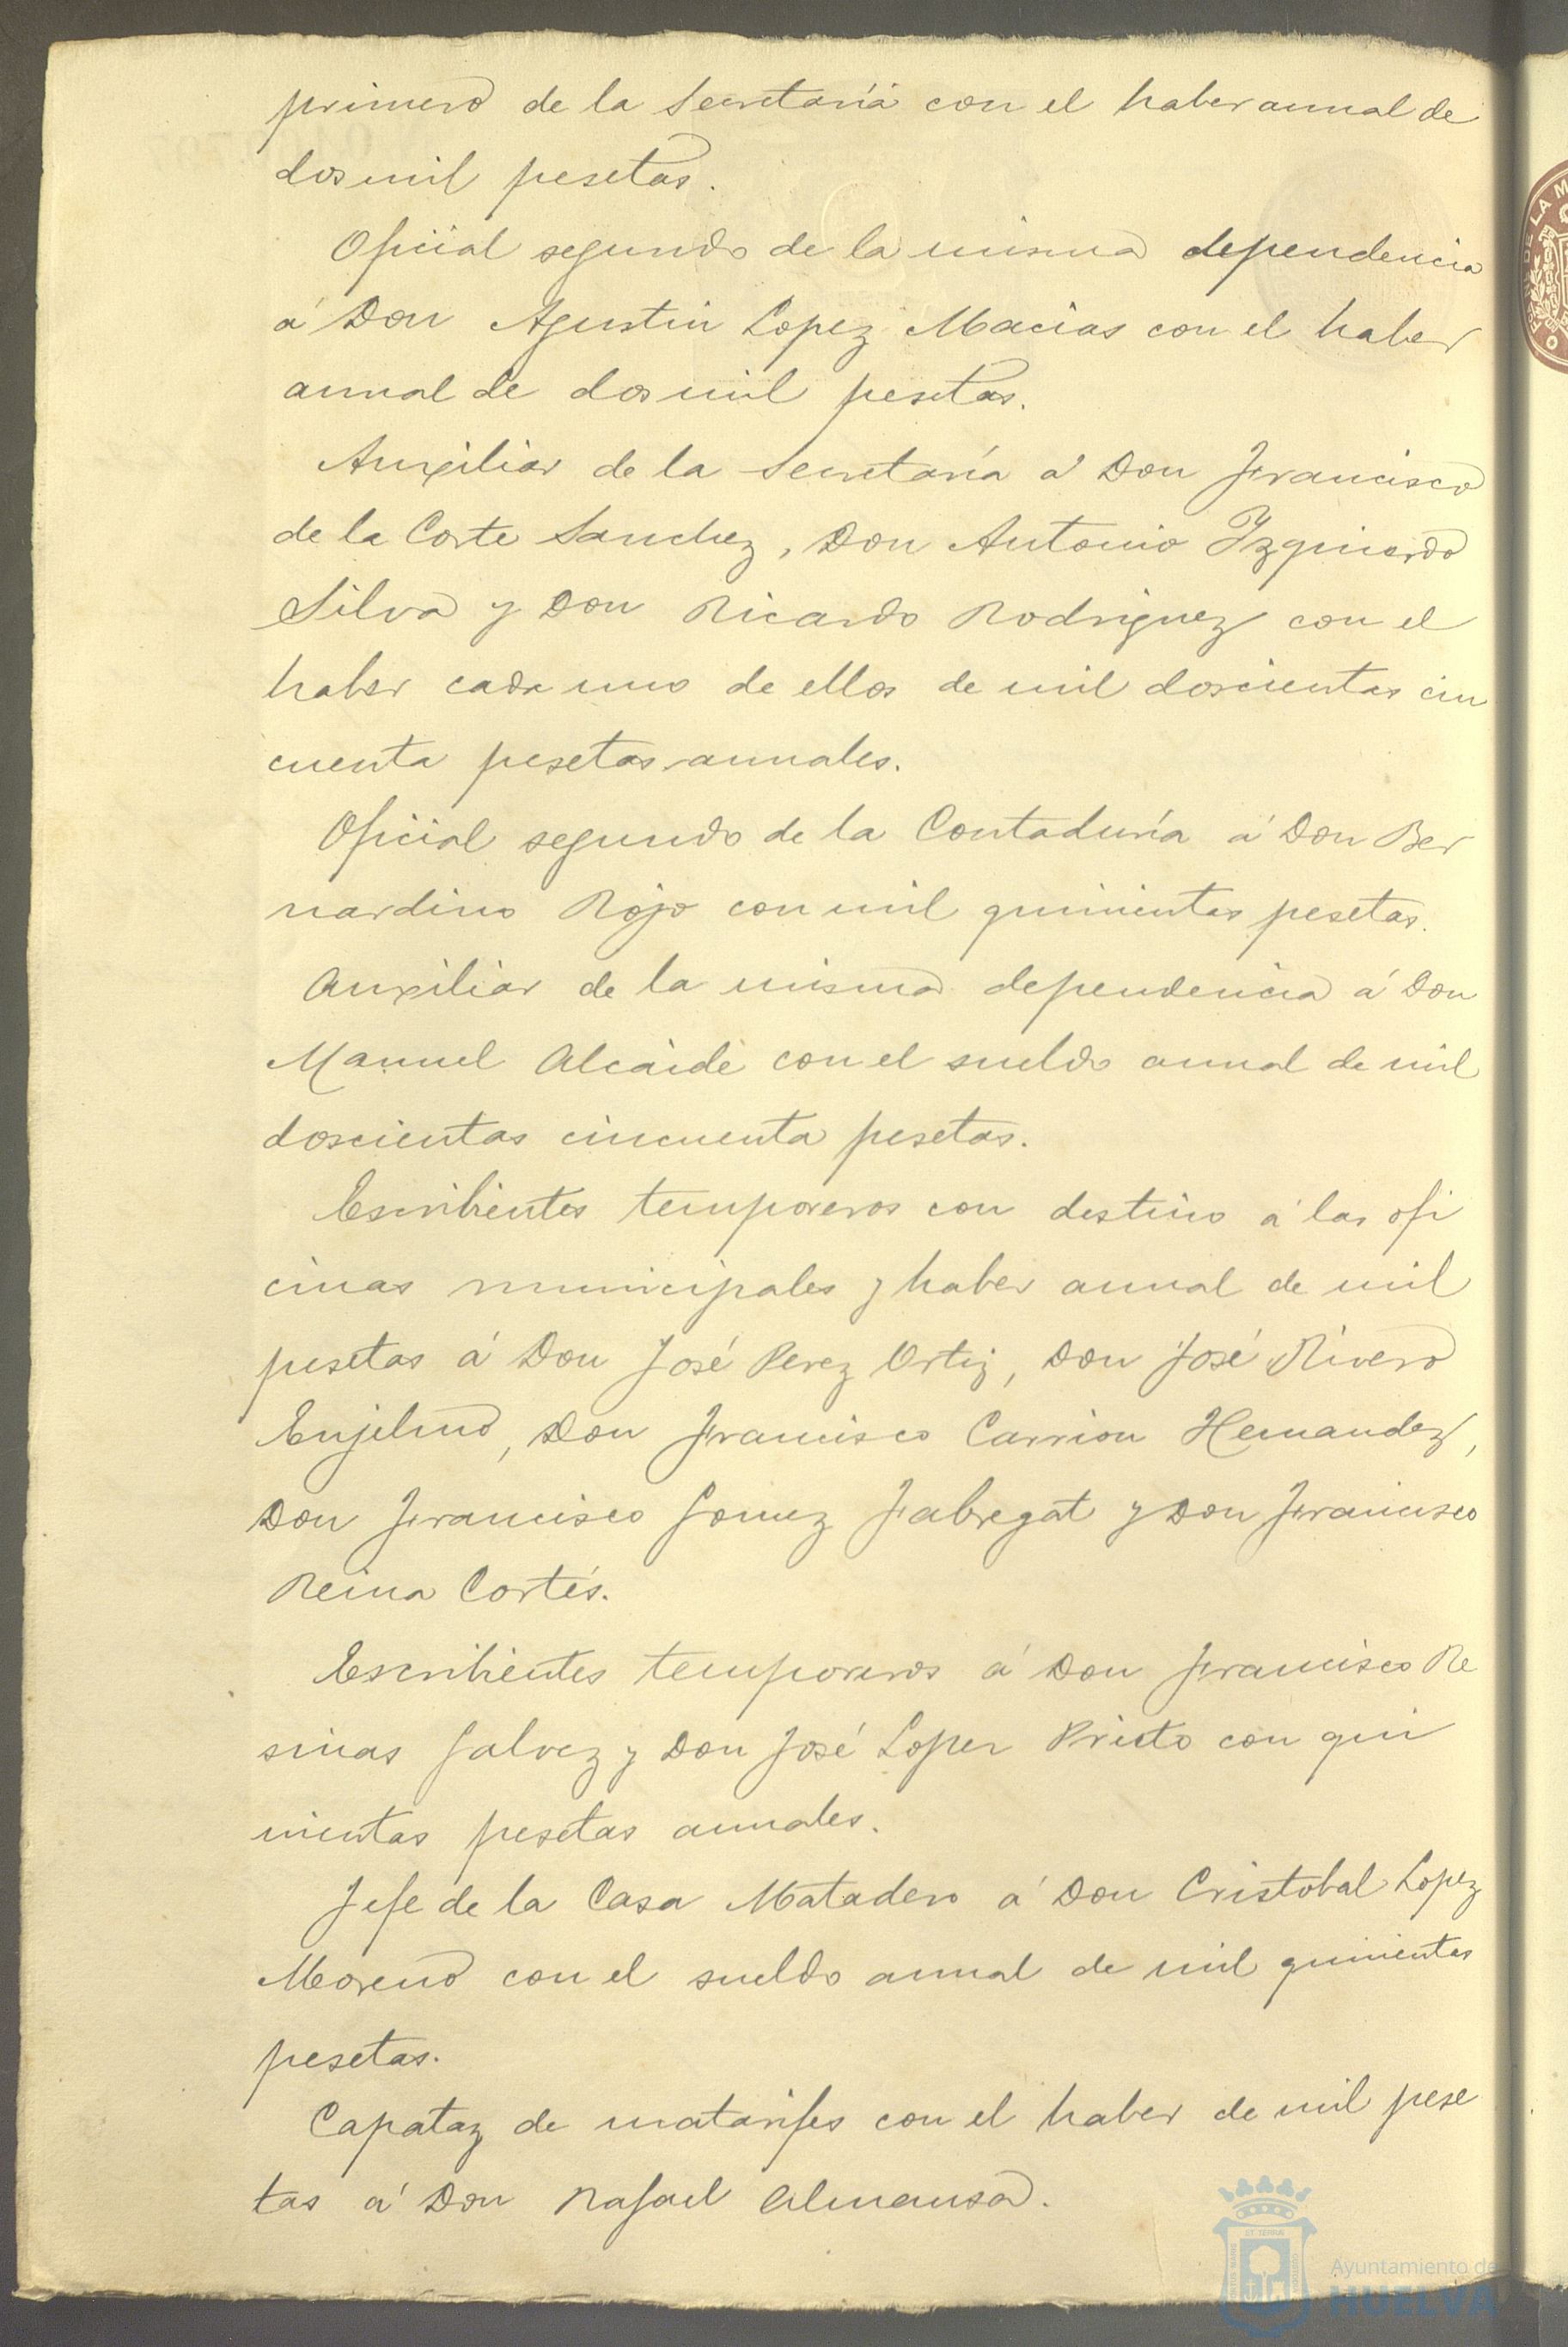 primero de la Secretaría con el haber anual de
dos mil pesetas.
Oficial segundo de la misma dependencia
á Don Agustin Lopez Macias con el haber
anual de dos mil pesetas.
Auxiliar de la Secretaría á Don Francisco
de la Corte Sanchez, Don Antonio Yzquierdo
Silva y Don Ricardo Rodriguez con el
haber cada uno de ellos de mil doscientas cin
cuenta pesetas anuales.
Oficial segundo de la Contaduría á Don Ber
nardino Rojo con mil quinientas pesetas.
Auxiliar de la misma dependencia á Don
Manuel Alcaide con el sueldo anual de mil
doscientas cincuenta pesetas.
Escribientes temporeros con destino á las ofi
cinas municipales y haber anual de mil
pesetas á Don José Perez Ortiz, Don José Rivero
Don Francisco Carrion Hernandez,
Don Francisco Gomez Fabregat y Don Francisco
Reina Cortés.
Escribientes temporeros á Don Francisco Re
sinas Galvez y Don José Lopez Prieto con qui
nientas pesetas anuales.
Jefe de la Casa Matadero á Don Cristobal Lopez
Moreno con el sueldo anual de mil quinientas
pesetas.
Capataz de matarifes con el haber de mil pese
tas á Don Rafael Almansa.
Ayuntamiento de
HUELVA